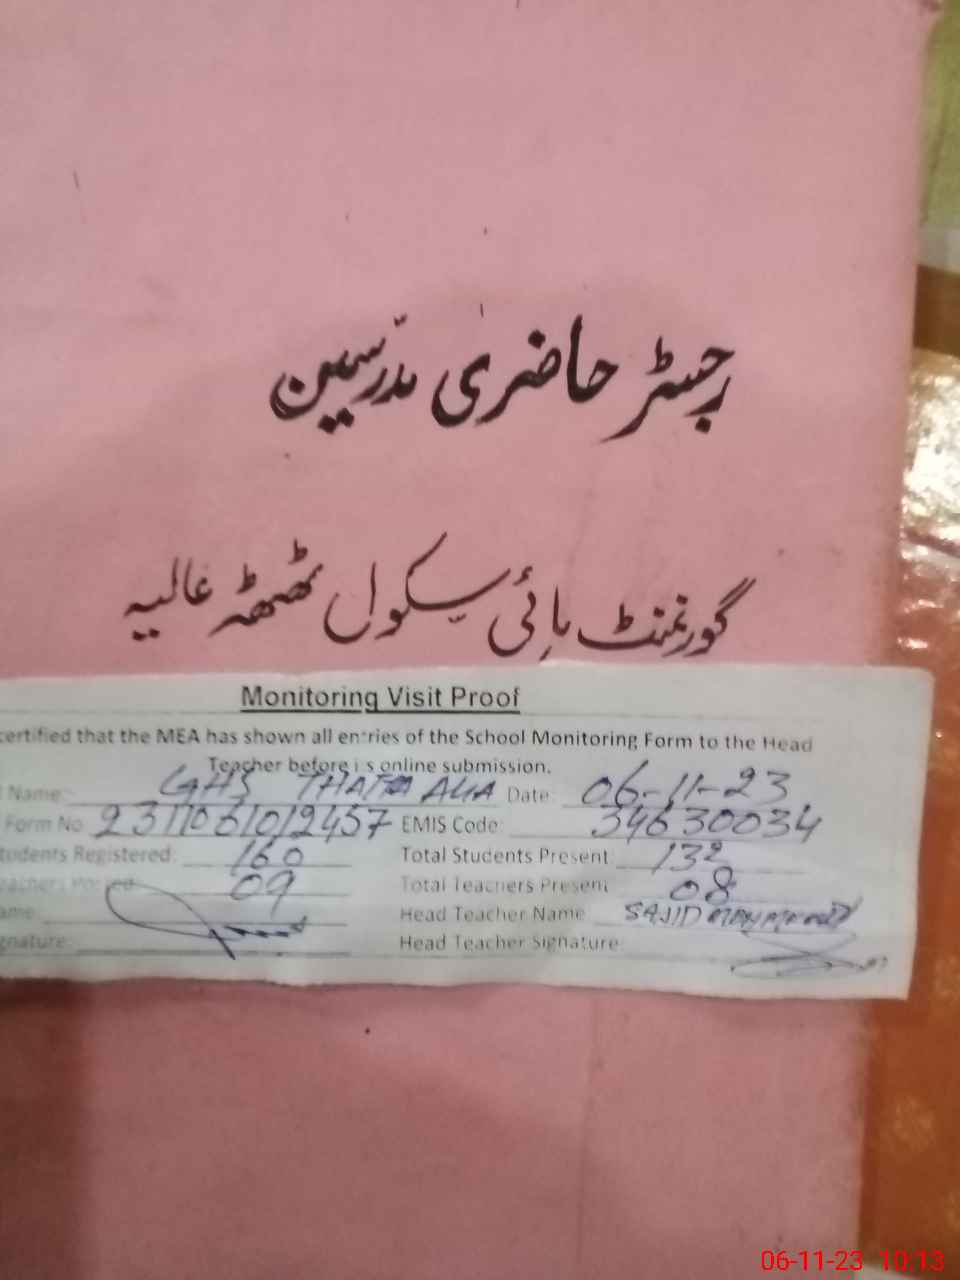 رجسٹر حاضری مدرسین
گورنمنٹ ہائی سکول ٹھٹھہ عالیہ
Monitoring Visit Proof
certified that the MEA has shown all entries of the School Monitoring Form to the Head
Teacher before i s online submission.
Name: GHS THATTA ALIA Date 06-11-23
Form No 2311061012457 EMIS Code: 34630034
tudents Registered: 160 Total Students Present: 132
eachers Posted 09 Total Teachers Present 08
ame Head Teacher Name SAJID MAHMOOD
gnature: Head Teacher Signature:
06-11-23 10:13